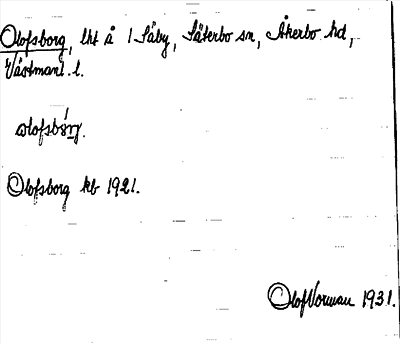 Olofsborg, lht å 1 Säby, Säterbo sn, Åkerbo hd,
Västmanl. l.
Olofsborg kb 1921.
Olof Norman 1931.